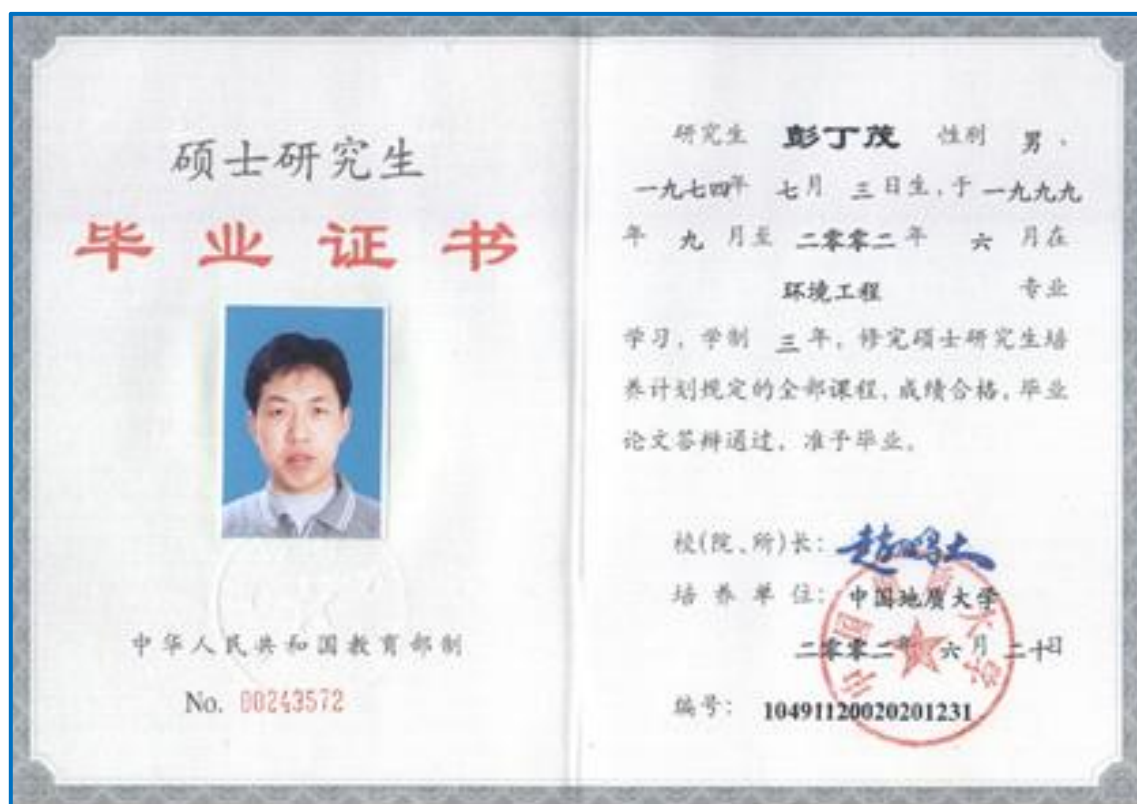 硕士研究生
毕业证书
中华人民共和国教育部制
No. 00243572
研究生 彭丁茂 性别 男，
一九七四年 七月 三日生，于一九九九
年 九 月至 二零零二年 六 月在
环境工程 专业
学习，学制 三年，修完硕士研究生培
养计划规定的全部课程，成绩合格，毕业
论文答辩通过，准予毕业。
校(院、所)长：
培养单位：中国地质大学
二零零二年 六月 二十日
编号：10491120020201231